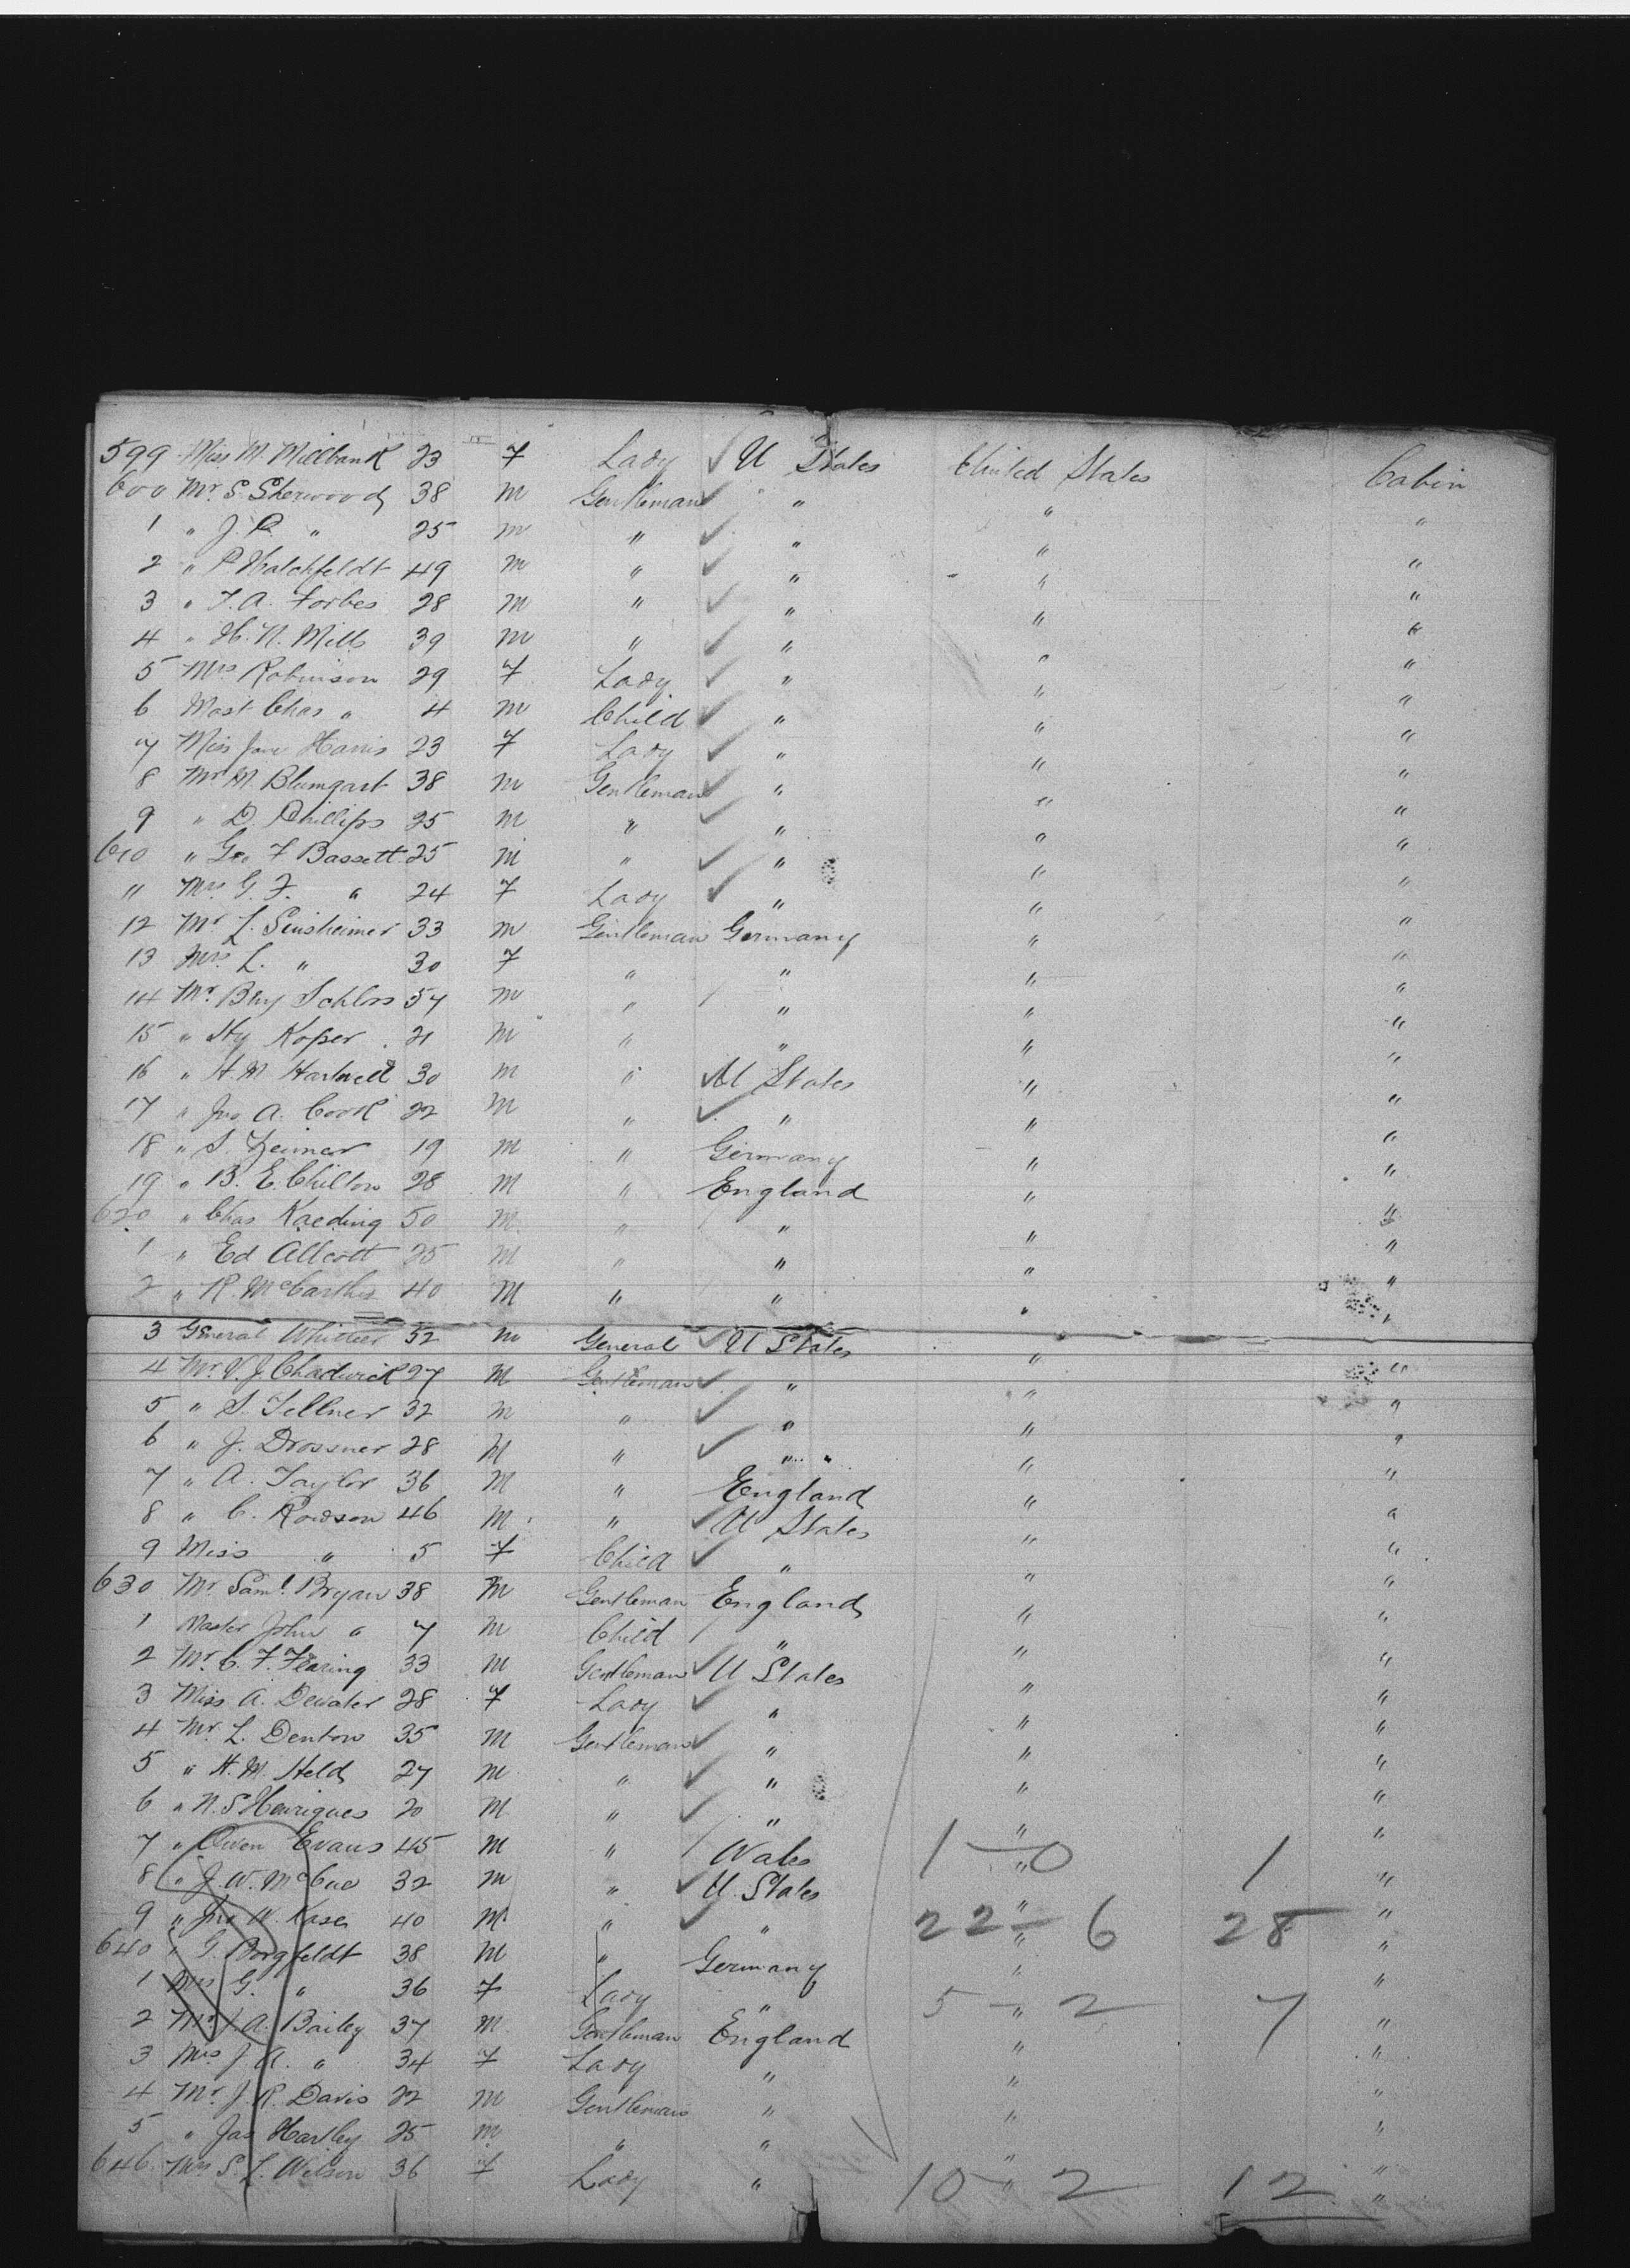 599 Miss M. Millbank 23 F Lady ✓ U States United States Cabin
600 Mr. S. Sherwood 38 M Gentleman ✓ " " "
1 " J. P. " 25 M " ✓ " " "
2 " P. Hatchfeldt 49 M " ✓ " " "
3 " J. A. Forbes 28 M " ✓ " " "
4 " H. N. Mills 39 M " ✓ " " "
5 Mrs Robinson 29 F Lady ✓ " " "
6 Mast Chas " 4 M Child ✓ " " "
7 Miss Jane Harris 23 F Lady ✓ " " "
8 Mr M. Blumgart 38 M Gentleman ✓ " " "
9 " D. Phillips 25 M " ✓ " " "
610 " Geo F Bassett 25 M " ✓ " " "
11 Mrs. G. F. " 24 F Lady ✓ " " "
12 Mr L. Sinsheimer 33 M Gentleman Germany " "
13 Mrs. L. " 30 F " " " "
14 Mr. Bny Schloss 57 M " " " "
15 " Hy Koper 21 M " " " "
16 " H. M. Hartwell 30 M " ✓ U States " "
17 " Jno A. Cook 22 M " ✓ " " "
18 " S. Zeimer 19 M " Germany " "
19 " B. E. Chilton 28 M " England " "
620 " Chas Kaeding 50 M " " " "
1 " Ed Allcott 25 M " " " "
2 " R. McCarthy 40 M " " " "
3 General Whittier 52 M General ✓ U States " "
4 Mr. V. J. Chadwick 27 M Gentleman ✓ " " "
5 " S. Tellner 32 M " ✓ " " "
6 " J. Drossner 28 M " ✓ " " "
7 " A. Taylor 36 M " England " "
8 " C. Rowson 46 M " ✓ U States " "
9 Miss " 5 F Child ✓ " " "
630 Mr. Saml. Bryan 38 M Gentleman England " "
1 Master John " 7 M Child " " "
2 Mr. C. F. Fearing 33 M Gentleman ✓ U States " "
3 Miss A. Dewater 28 F Lady ✓ " " "
4 Mr. L. Denton 35 M Gentleman ✓ " " "
5 " H. M. Held 27 M " ✓ " " "
6 " N. S Henriques 20 M " ✓ " " "
7 " Owen Evans 45 M " Wales " "
1 – 0 1
8 " J. W. McCue 32 M " ✓ U. States " "
9 " Jno W. Kase 40 M " ✓ " " "
22 – 6 28
640 " G. Borgfeldt 38 M " Germany " "
1 Mrs G. " 36 F Lady " " "
5 – 2 7
2 Mr. J. A. Bailey 37 M Gentleman England " "
3 Mrs J. A. " 34 F Lady " " "
4 Mr. J. R. Davis 22 M Gentleman " " "
5 " Jas Hartley 25 M " " " "
646 Mrs S. L. Wilson 36 F Lady " " "
10 – 2 12